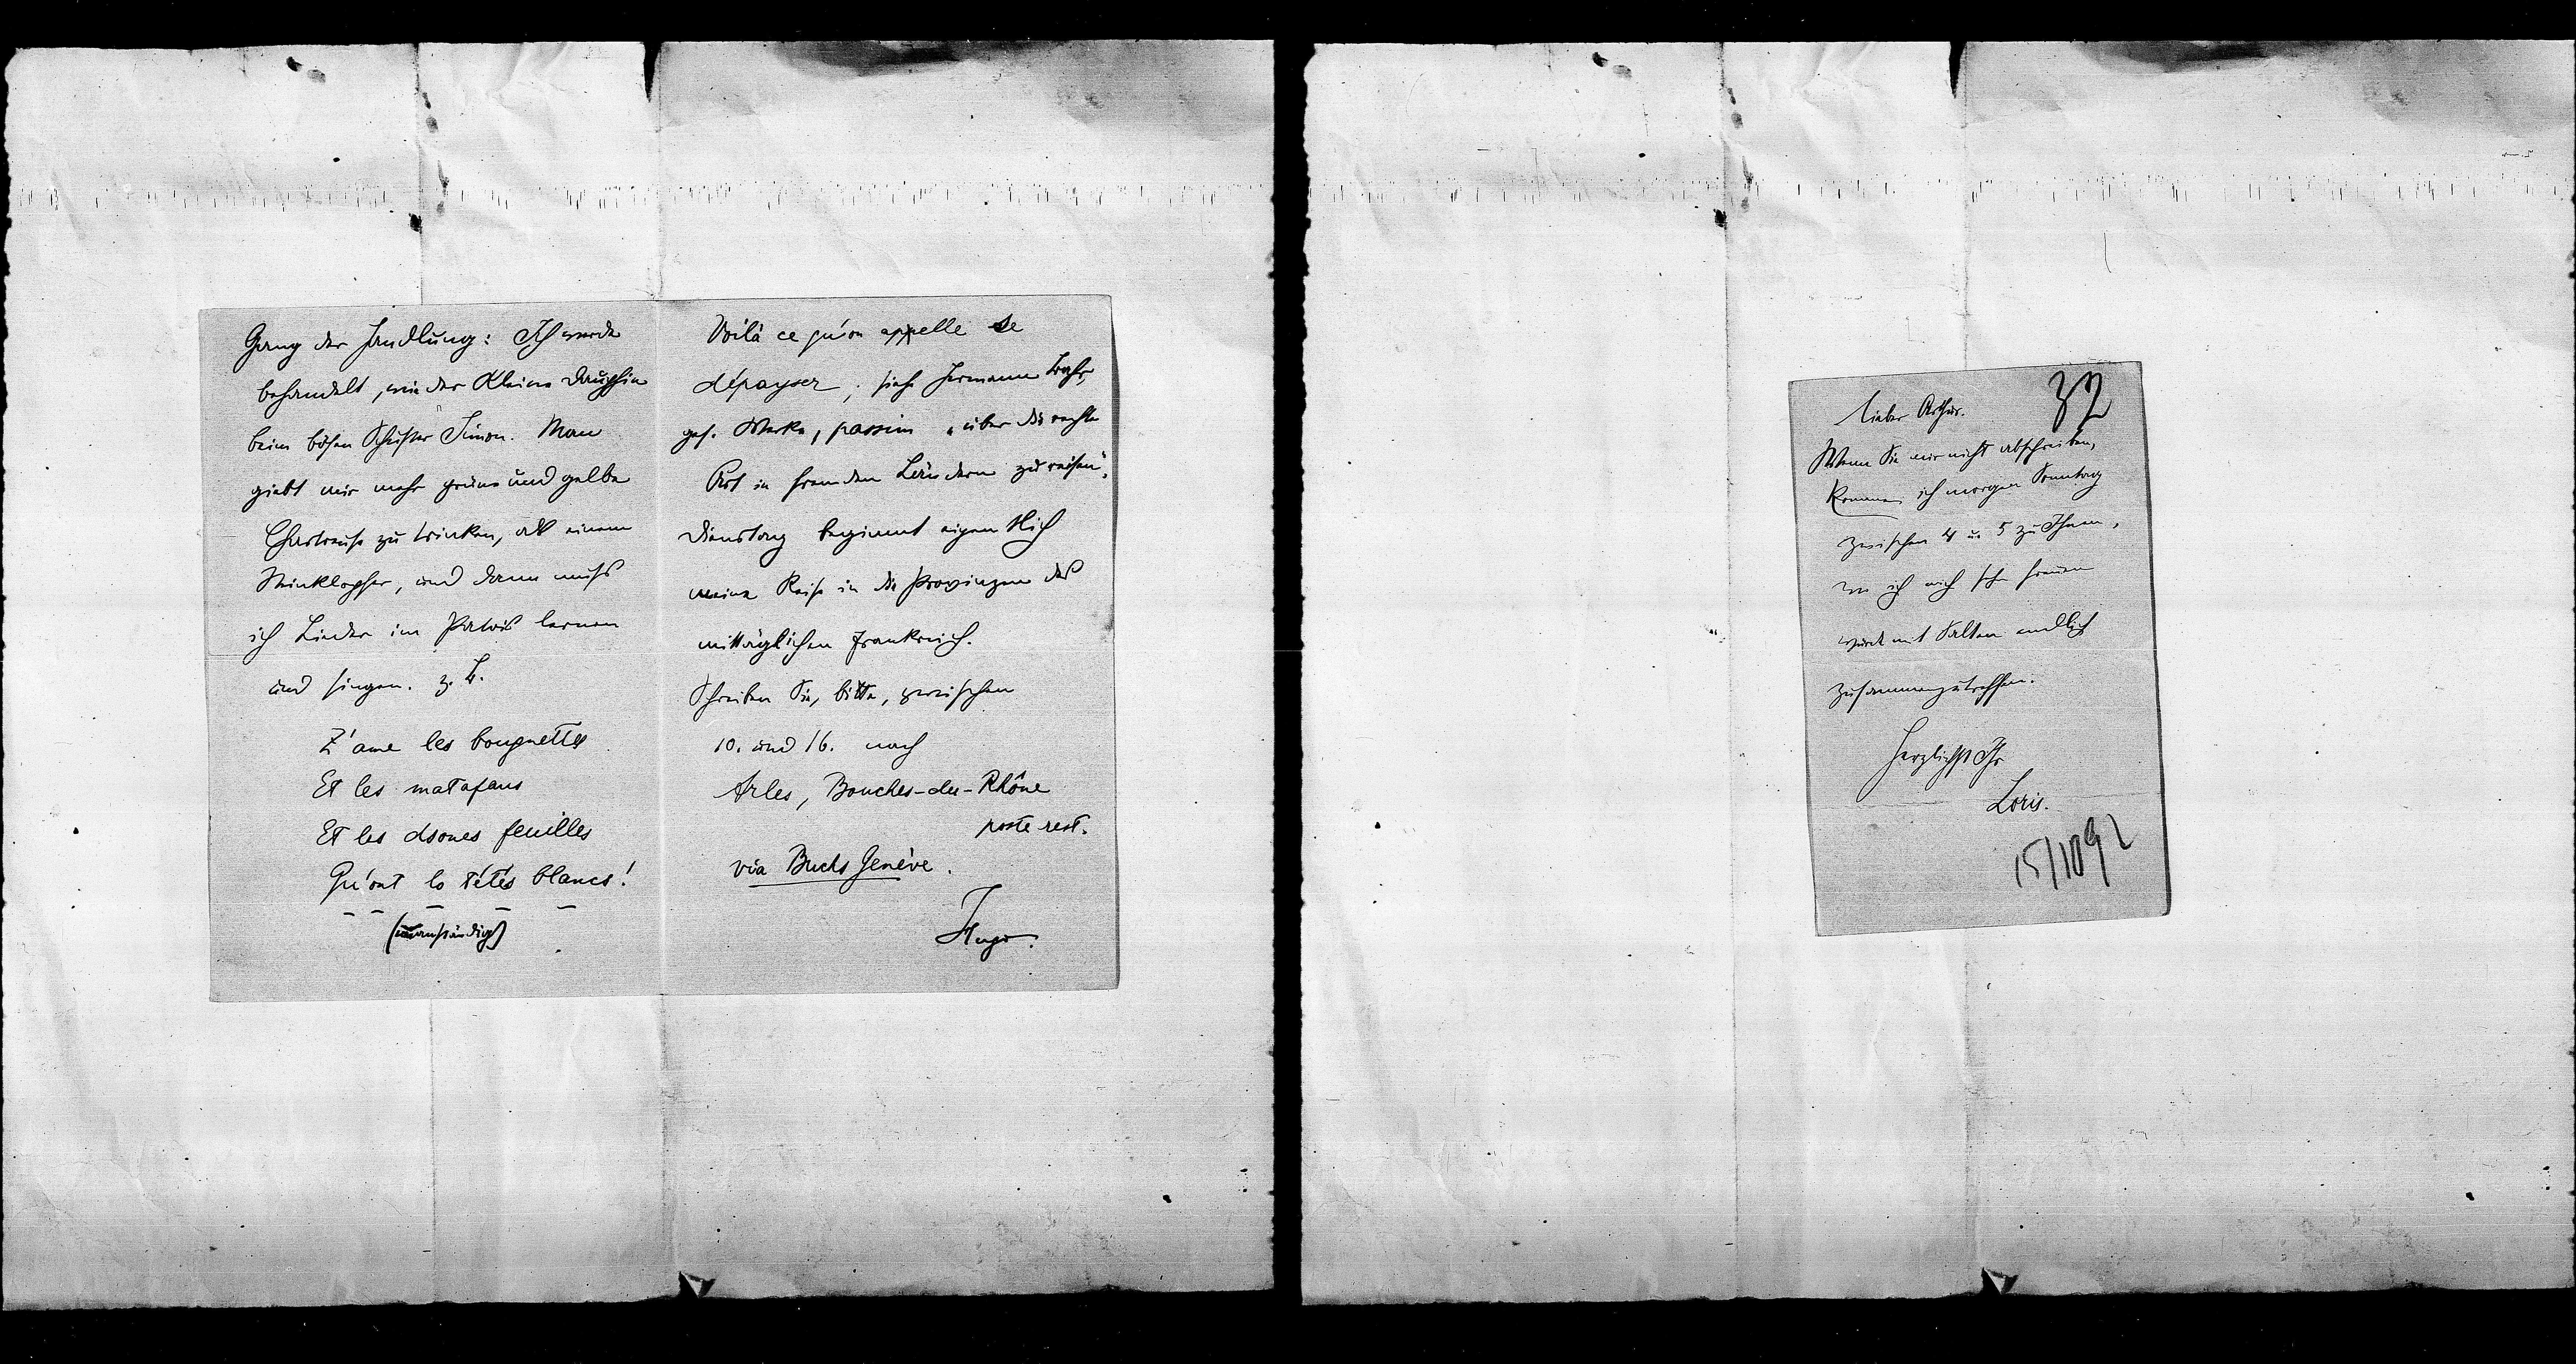 Gang der Handlung: Ich werde
behandelt, wie der kleine Dauphin
beim bösen Schuster Simon. Man
giebt mir mehr grüne und gelbe
Chartreuse zu trinken, als einem
und dann muss
ich Lieder im Patois lernen
und singen. z. B.
Z'ame les bougnettes
Et les matafans
Et les dsones feuilles
Qu'ont lo tétés blancs!
(unanständig)
Voilà ce qu'on appelle se
dépayser; siehe Hermann Bahr,
ges. Werke, passim „über die rechte
Art in fremden Ländern zu reisen".
Dienstag beginnt eigentlich
meine Reise in die Provinzen des
mittäglichen Frankreich.
Schreiben Sie, bitte, zwischen
10. und 16. nach
Arles, Bouches-du-Rhône
poste rest.
via Buchs Genève.
Hugo.
32
lieber Arthur.
Wenn Sie mir nicht abschreiben,
komme ich morgen Sonntag
zwischen 4 u. 5 zu Ihnen,
wo ich mich sehr freuen
würde mit Salten endlich
zusammenzutreffen.
Herzlichst Ihr
Loris.
15/10 92